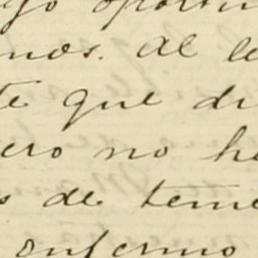 go oportun
mos. Al le
te que di
ero no ha
s de teme
enfermo